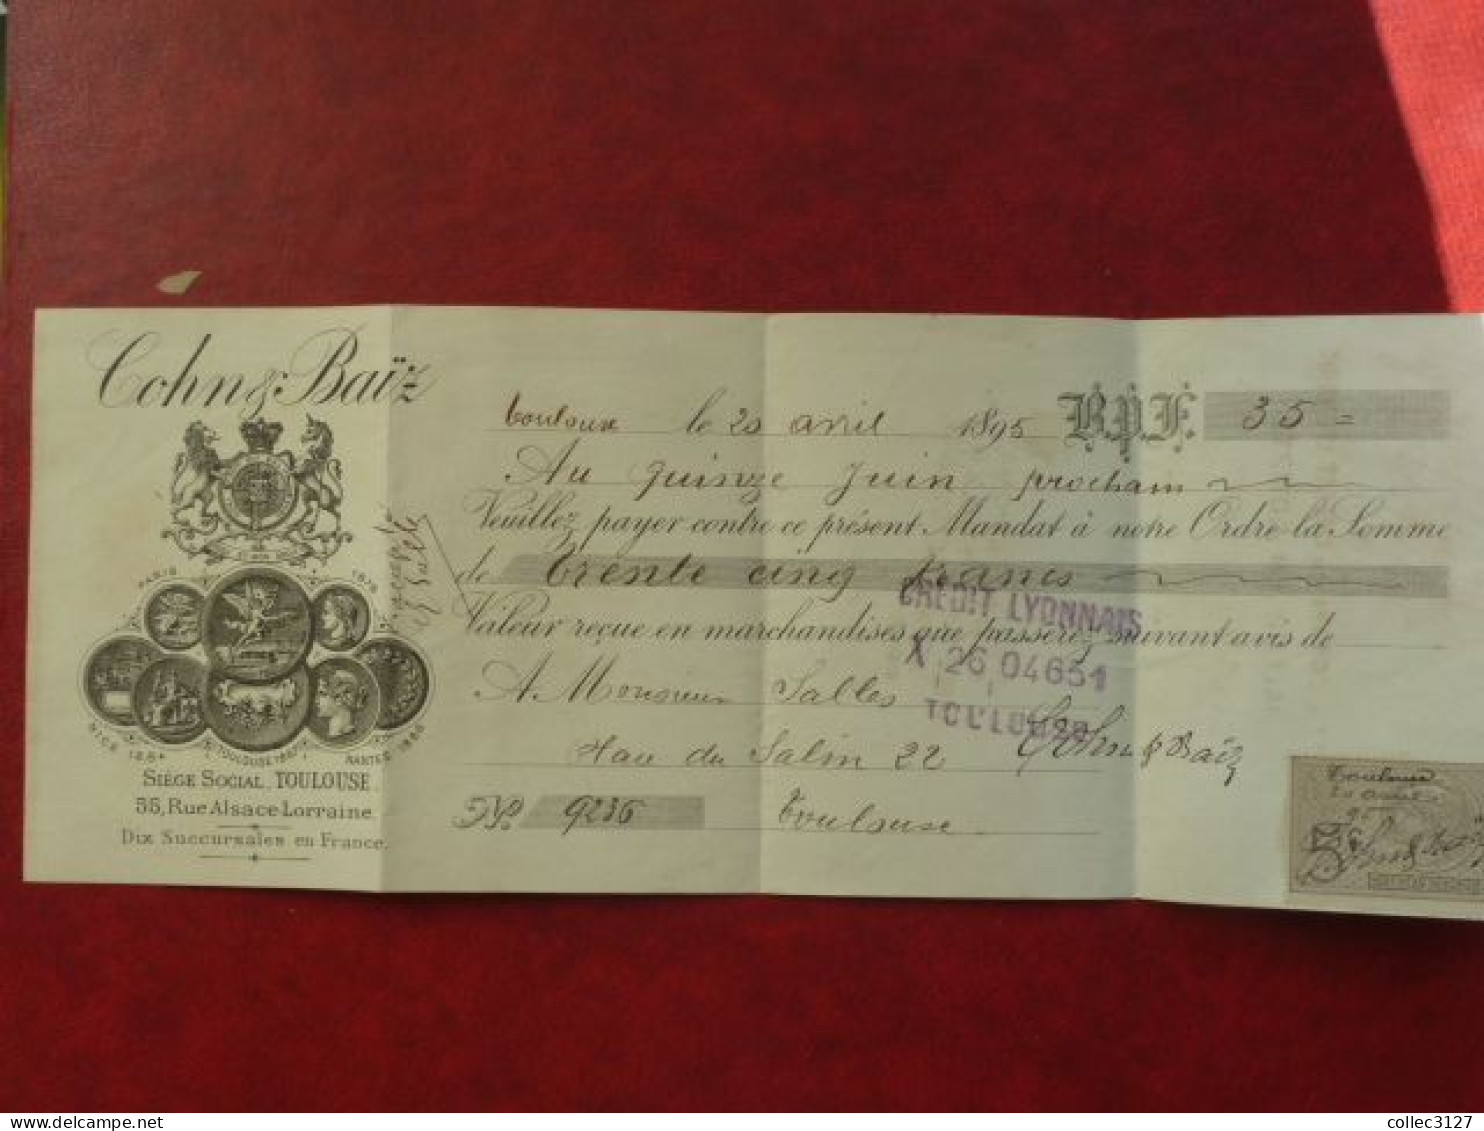 Cohn & Baïz
PARIS 1878
NICE 1884 TOULOUSE 1887 NANTES 1886
SIÈGE SOCIAL, TOULOUSE
55, Rue Alsace-Lorraine
DIX SUCCURSALES en FRANCE.
Toulouse le 20 avril 1895 B.P.F. 35 =
Au quinze juin prochain
Veuillez payer contre ce présent Mandat à notre Ordre la Somme
de trente cinq francs
Valeur reçue en marchandises que passerez suivant avis de
CRÉDIT LYONNAIS
X 26 04651
TOULOUSE
A Monsieur Salles
du Salin 22 Cohn & Baïz
No. 9236 Toulouse
acceptée
Toulouse
20 avril
95
5c
collec3127